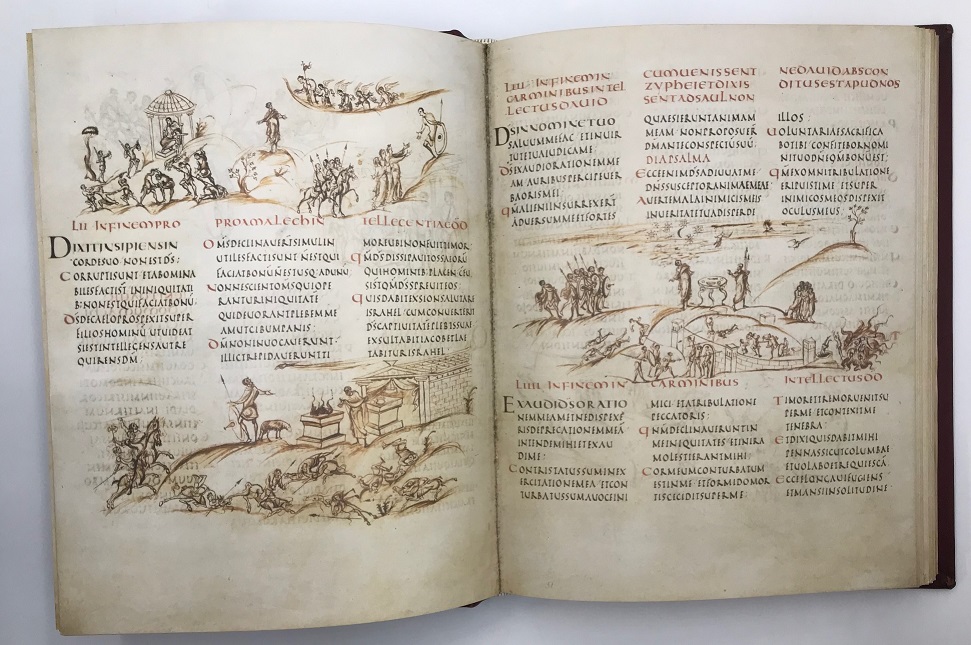 LII IN FINEM PRO
DIXIT INSIPIENS IN
CORDE SUO NON EST DS:
CORRUPTI SUNT ET ABOMINA
BILES FACTI ST IN INIQUITATI
B: NON EST QUI FACIAT BONU:
DS DE CAELO PROSPEXIT SUPER
FILIOS HOMINU UT UIDEAT
SI EST INTELLEGENS AUT RE
QUIRENS DM:
PRO AMALECH IN
OMS DECLINAUERT SIMUL IN
UTILES FACTI SUNT N EST QUI
FACIAT BONU N EST USQ: AD UNU:
NONNE SCIENT OMS QUI OPE
RANTUR INIQUITATE
QUI DEUORANT PLEBEM ME
AM UT CIBUM PANIS:
DM NON INUOCAUERUNT:
ILLIC TREPIDAUERUNT TI
TELLECENTIA
MORE UBI NON FUIT TIMOR
QM DS DISSIPAUIT OSSA EORU
QUI HOMINIB: PLACENT
SI ST QM DS SPREUIT EOS
QUIS DABIT EX SION SALUTARE
ISRAHEL CUM CONUERTERIT
DS CAPTIUITATE PLEBIS SUAE
EXSULTABIT IACOB ET LAE
TABITUR ISRAHEL
LIII IN FINEM IN
CARMINIBUS INTEL
LECTUS DAUID
DS IN NOMINE TUO
SALUUM ME FAC ET IN UIR
TUTE TUA IUDICA ME
DS EXAUDI ORATIONEM ME
AM AURIBUS PERCIPE UER
BA ORIS MEI:
QM ALIENI INSURREXERT
ADUERSUM ME ET FORTES
CUM UENISSENT
ZYPHEI ET DIXIS
SENT AD SAUL NON
QUAESIERUNT ANIMAM
MEAM NON PROPOSUER
DM ANTE CONSPECTU SUU:
DIAPSALMA
ECCE ENIM DS ADIUUAT ME
DNS SUSCEPTOR ANIMAE MEAE
AUERTE MALA INIMICIS MEIS
IN UERITATE TUA DISPERDE
NE DAUID ABSCON
DITUS EST APUD NOS
ILLOS:
UOLUNTARIAE SACRIFICA
BO TIBI CONFITEBOR NOMI
NI TUO DNE QM BONU EST:
QM EX OMNI TRIBULATIONE
ERIPUISTI ME ET SUPER
INIMICOS MEOS DISPEXIT
OCULUS MEUS
LIIII IN FINEM IN
EXAUDI DS ORATIO
NEM MEAM ET NE DISPEXE
RIS DEPRECATIONEM MEA
INTENDE MIHI ET EXAU
DI ME:
CONTRISTATUS SUM IN EX
ERCITATIONE MEA ET CON
TURBATUS SUM A UOCE INI
CARMINIBUS
MICI ET A TRIBULATIONE
PECCATORIS:
QNM DECLINAUERUNT IN
ME INIQUITATES ET IN IRA
MOLESTI ERANT MIHI
COR MEUM CONTURBATUM
EST IN ME ET FORMIDO MOR
TIS CECIDIT SUPER ME:
INTELLECTUS DD
TIMOR ET TREMOR UENIT SU
PER ME ET CONTEXIT ME
TENEBRA:
ET DIXI QUIS DABIT MIHI
PENNAS SICUT COLUMBAE
ET UOLABO ET REQUIESCA:
ECCE ELONGAUI FUGIENS
ET MANSI IN SOLITUDINE